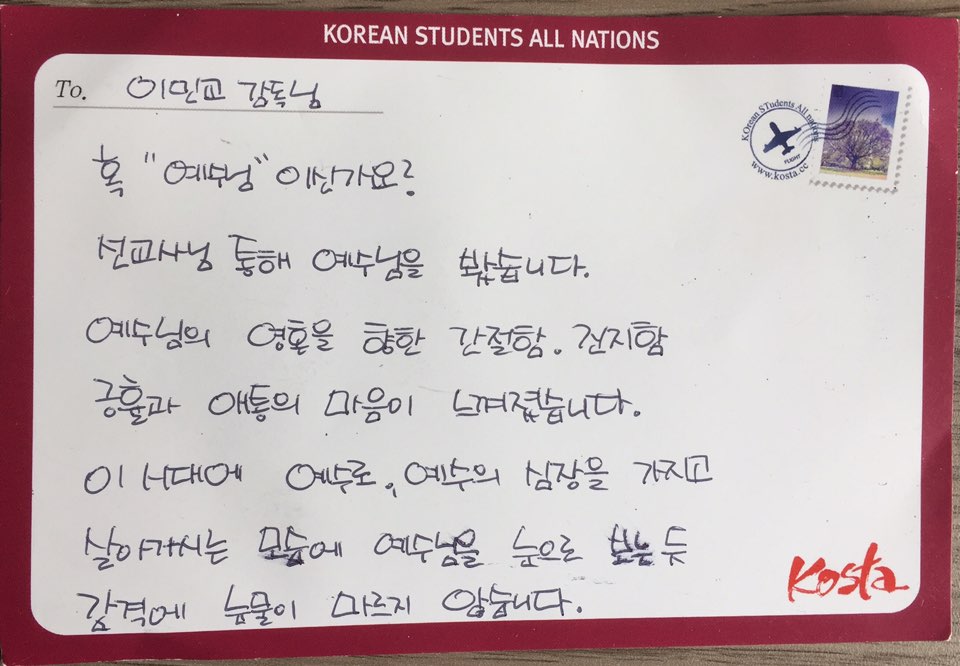 KOREAN STUDENTS ALL NATIONS
To. 이민교 감독님
KOrean STudents All nations
FLIGHT
www.kosta.cc
혹 "예수님" 이신가요?
선교사님 통해 예수님을 봤습니다.
예수님의 영혼을 향한 간절함. 진지함
긍휼과 애통의 마음이 느껴졌습니다.
이 시대에 예수로, 예수의 심장을 가지고
살아가시는 모습에 예수님을 눈으로 보는 듯
감격에 눈물이 마르지 않습니다.
Kosta